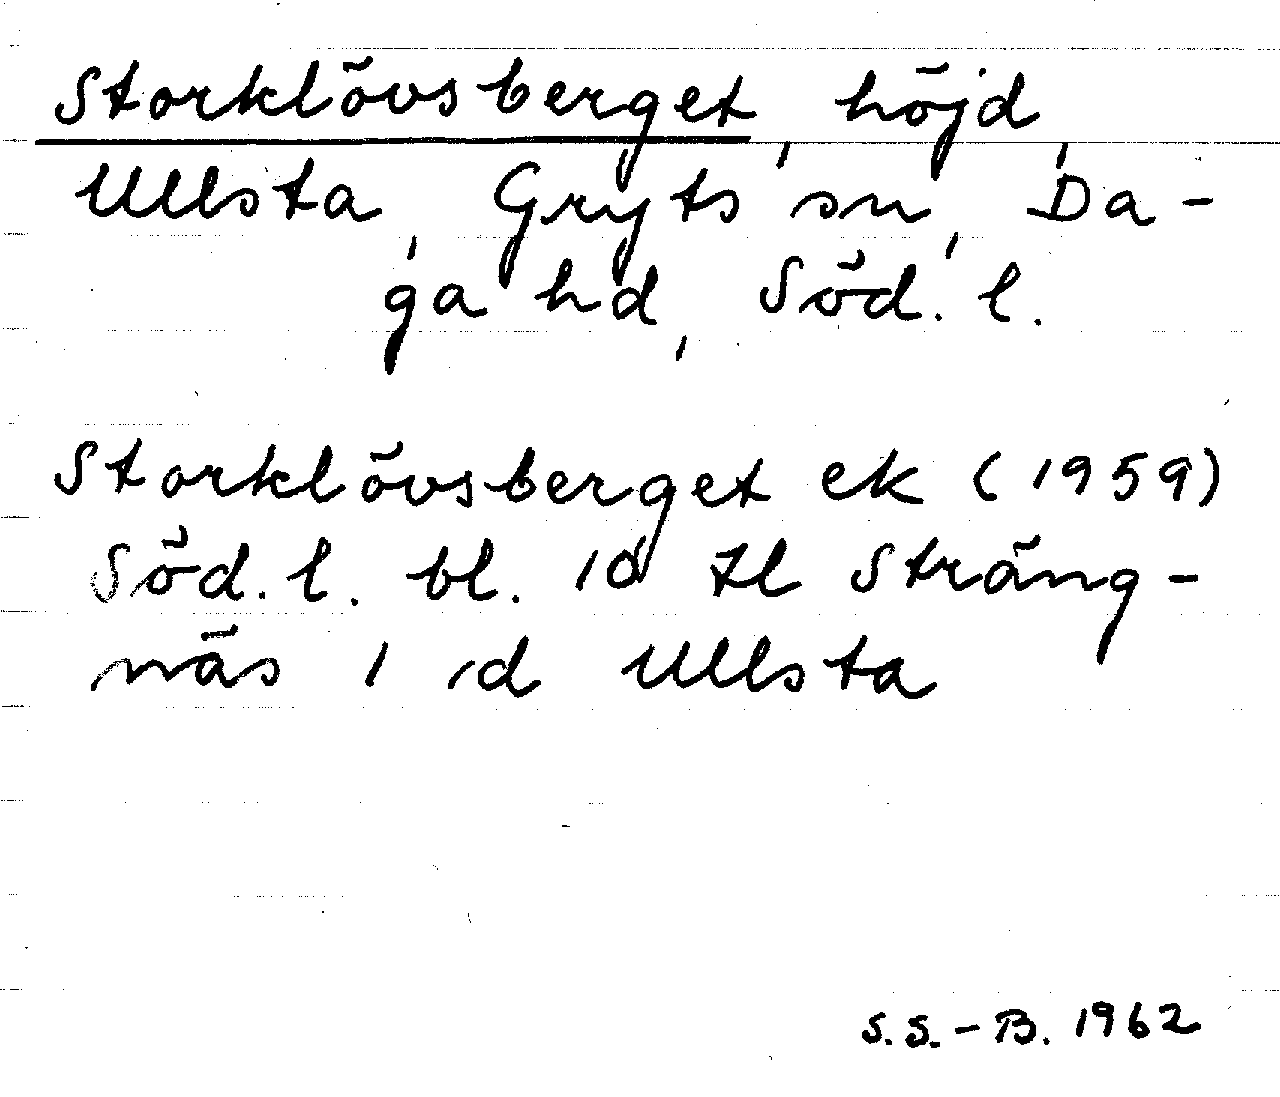 Storklövsberget, höjd,
Ullsta, Gryts sn, Da-
ga hd, Söd. l.
Storklövsberget ek (1959)
Söd. l. bl. 10 tl Sträng-
näs 1 d Ullsta
S.S.-B. 1962